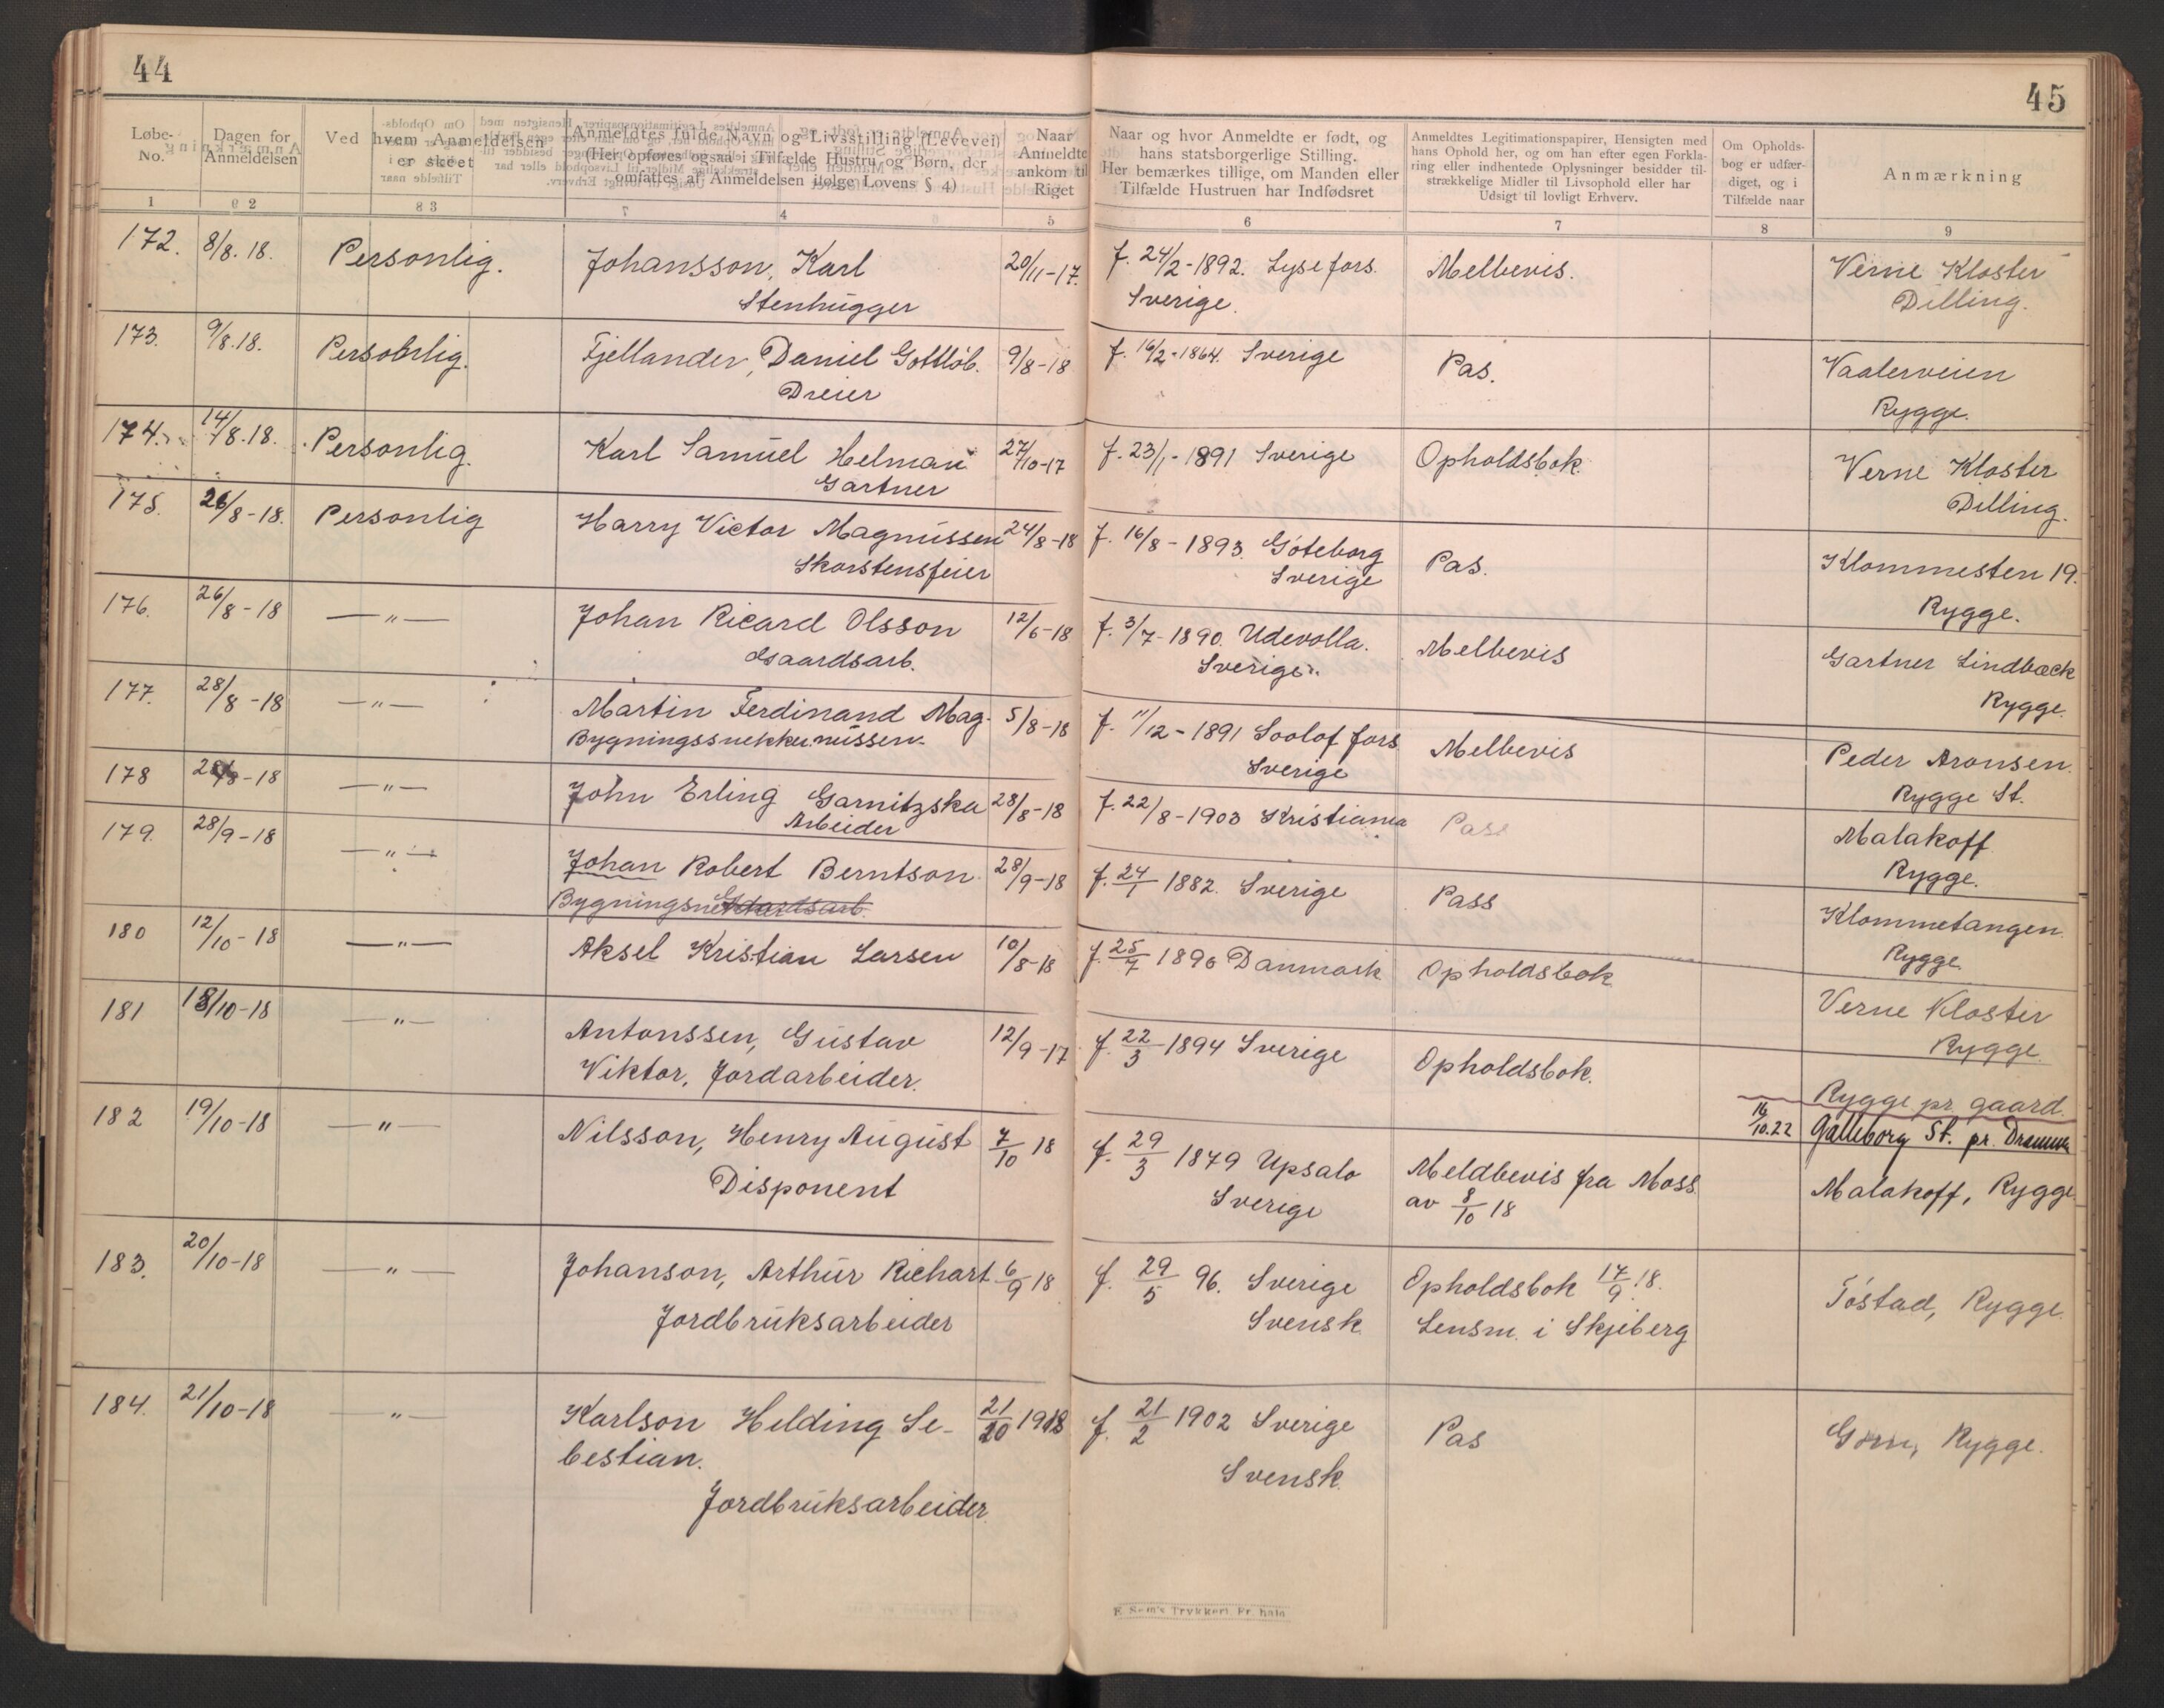 44
45
Løbe-
No.
Dagen for
Anmeldelsen
Ved hvem Anmeldelsen
er skeet
Anmeldtes fulde Navn og Livsstilling (Levevei)
(Her opføres ogsaa i Tilfælde Hustru og Børn, der
omfattes af Anmeldelsen ifølge Lovens § 4)
Naar
Anmeldte
ankom til
Riget
Naar og hvor Anmeldte er født, og
hans statsborgerlige Stilling.
Her bemærkes tillige, om Manden eller
Tilfælde Hustruen har Indfødsret
Anmeldtes Legitimationspapirer, Hensigten med
hans Ophold her, og om han efter egen Forkla-
ring eller indhentede Oplysninger besidder til-
strækkelige Midler til Livsophold eller har
Udsigt til lovligt Erhverv.
Om Opholds-
bog er udfær-
diget, og i
Tilfælde naar
Anmærkning
1 2 3 4 5 6 7 8 9
172. 8/8. 18. Personlig. Johansson, Karl 20/11-17. f. 24/2-1892. Lysefors. Melbevis. Verne Kloster
Stenhugger Sverige. Dilling.
173. 9/8.18. Personlig. Fjellander, Daniel Gottlob. 9/8-18 f. 16/2-1864. Sverige Pas. Vaalerveien
Dreier Rygge.
174. 14/8.18. Personlig. Karl Samuel Helman 27/10-17 f. 23/1-1891 Sverige Opholdsbok. Verne Kloster
Gartner Dilling.
175. 26/8-18. Personlig Harry Victor Magnussen 24/8-18 f. 16/8-1893. Göteborg Pas. Klommesten 19.
Skorstensfeier Sverige Rygge.
176. 26/8-18 —"— Johan Ricard Olsson 12/6-18 f. 3/7-1890. Udevolla. Melbevis Gartner Lindbæck
Gaardsarb. Sverige. Rygge.
177. 28/8-18 —"— Martin Ferdinand Mag- 5/8-18 f. 11/12-1891 Soolof fors Melbevis Peder Aronsen.
Bygningssnekker. nussen. Sverige Rygge St.
178 28/8-18 —"— John Erling Garnitzska 28/8-18 f. 22/8-1903 Kristiania Pass Malakoff
Arbeider Rygge.
179. 28/9-18 —"— Johan Robert Berntson. 28/9-18 f. 24/1 1882. Sverige Pass Klommetangen.
Bygningsnekker Gaardsarb. Rygge.
180 12/10-18 —"— Aksel Kristian Larsen 10/8-18 f. 25/7 1896 Danmark Opholdsbok Verne Kloster
Rygge.
181 18/10-18 —"— Antonssen, Gustav 12/9-17 f. 22/3-1894 Sverige Opholdsbok. Rygge pr. gaard.
Viktor, Jordarbeider. 16/10.22 Galleborg St. pr. Drammen
182 19/10-18 —"— Nilsson, Henry August 7/10 18 f. 29/3 1879 Upsala Meldbevis fra Moss. Malakoff, Rygge.
Disponent Sverige av 8/10 18
183. 20/10-18 —"— Johanson, Arthur Richart 6/9 18 f. 29/5 96. Sverige Opholdsbok 17/9 18. Tøstad, Rygge.
Jordbruksarbeider Svensk. Lensm. i Skjeberg
184. 21/10-18 —"— Karlson Helding Se- 21/10 1918 f. 21/2 1902 Sverige Pas Gom, Rygge.
bestian. Svensk.
Jordbruksarbeider.
E. Sem's Trykkeri, Fr.hald